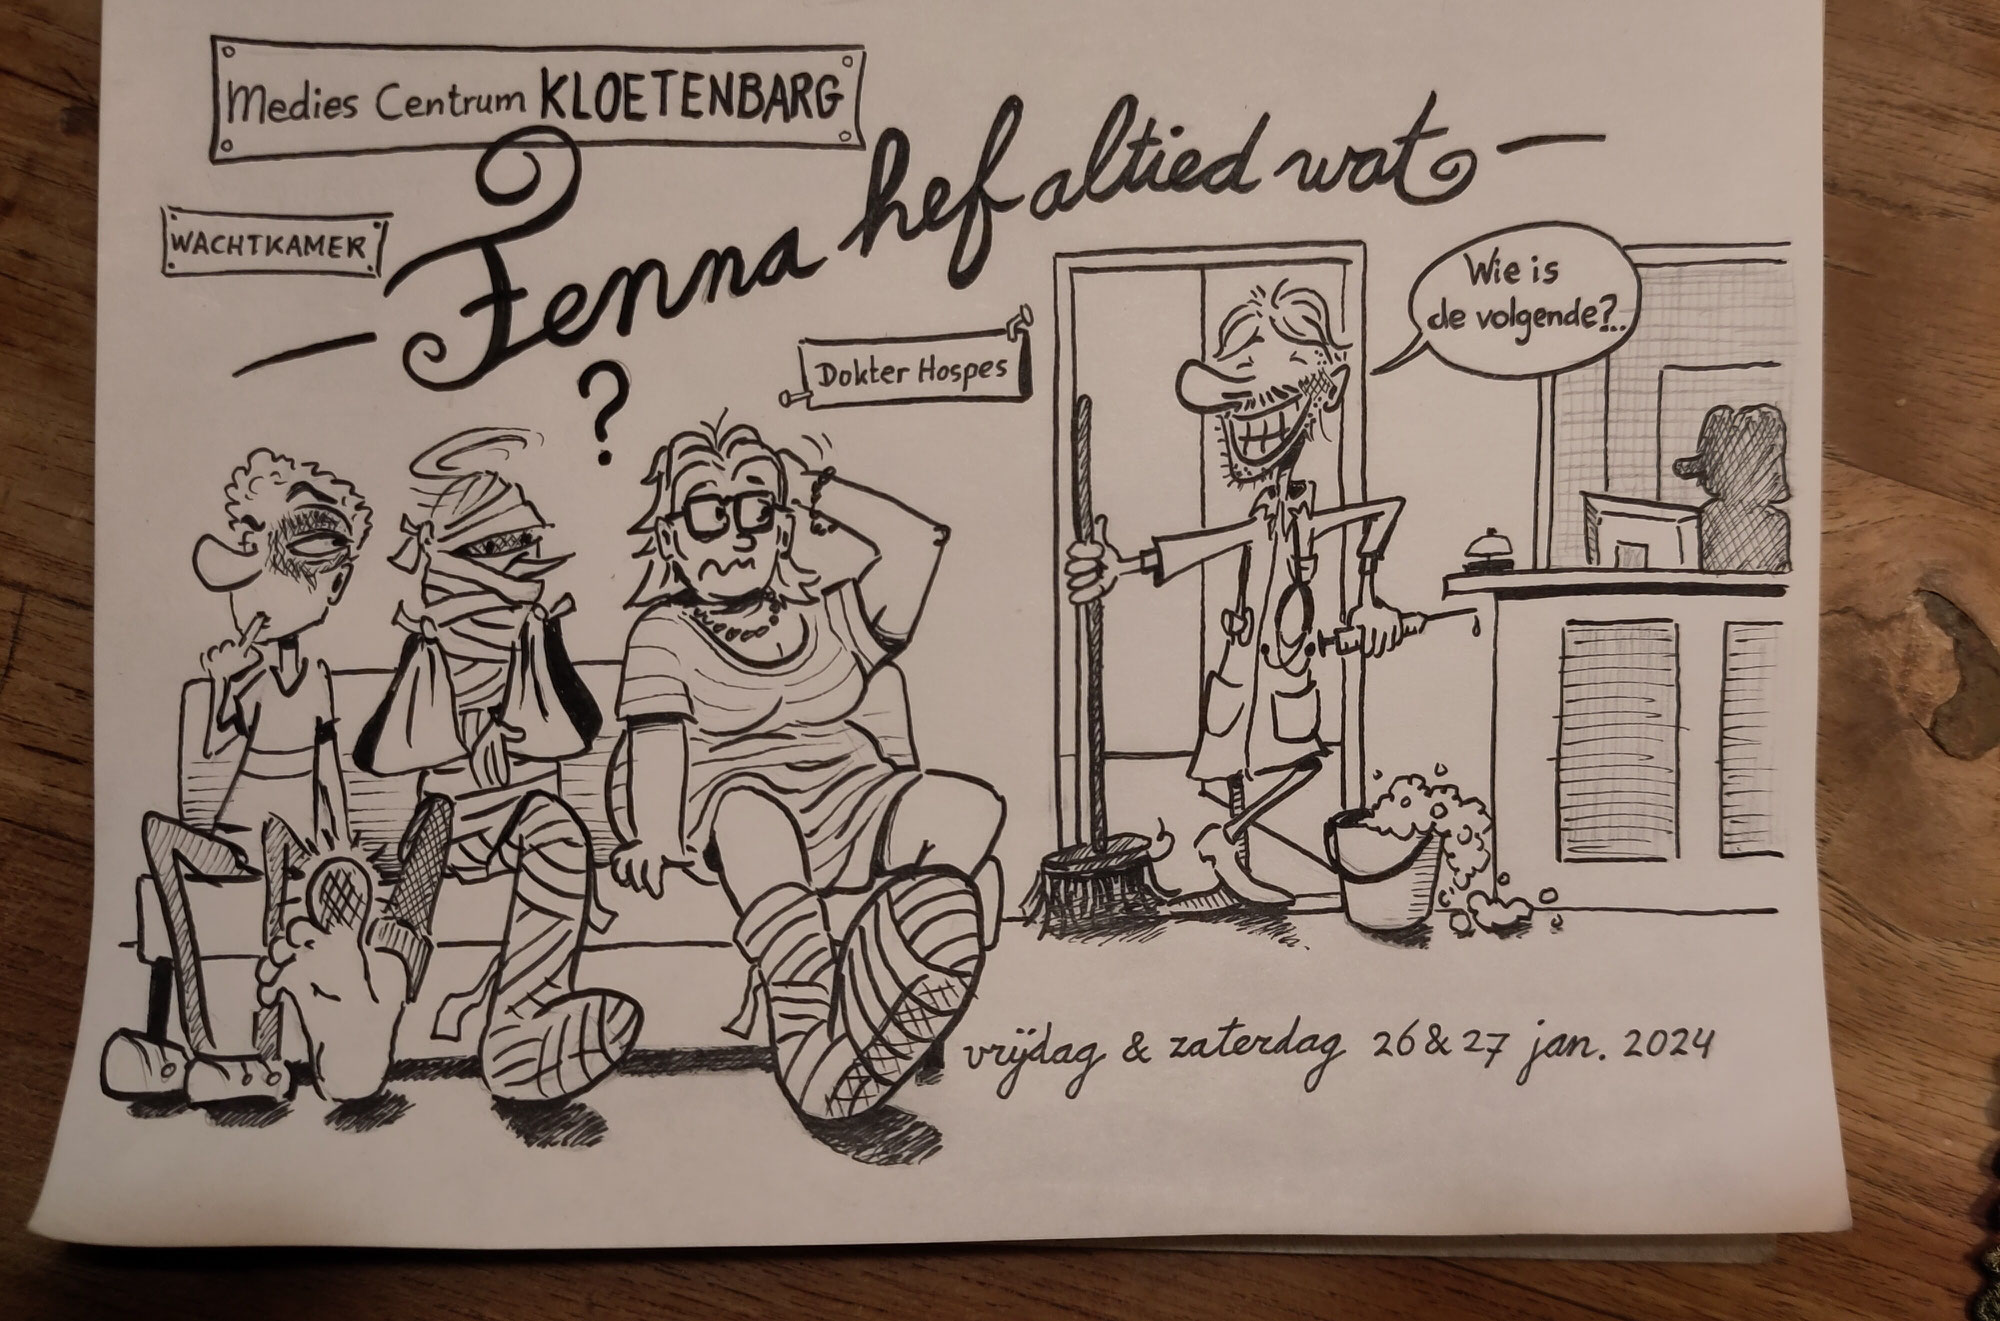 Medies Centrum KLOETENBARG
WACHTKAMER
Fenna hef altied wat
?
Dokter Hospes
Wie is
de volgende?..
vrijdag & zaterdag 26 & 27 jan. 2024